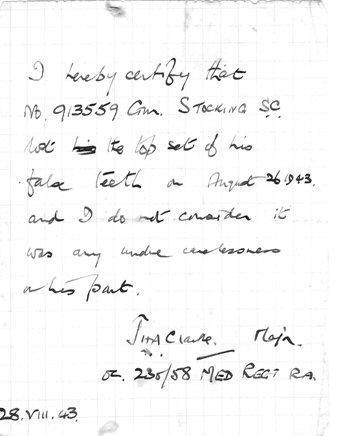 I hereby certify that
No. 913559 Gnr. STOCKING S.C.
lost the top set of his
false teeth on August 26 1943.
and I do not consider it
was any undue carelessness
on his part.
Major.
OC. 230/58 MED REGT R.A.
28.VIII.43.